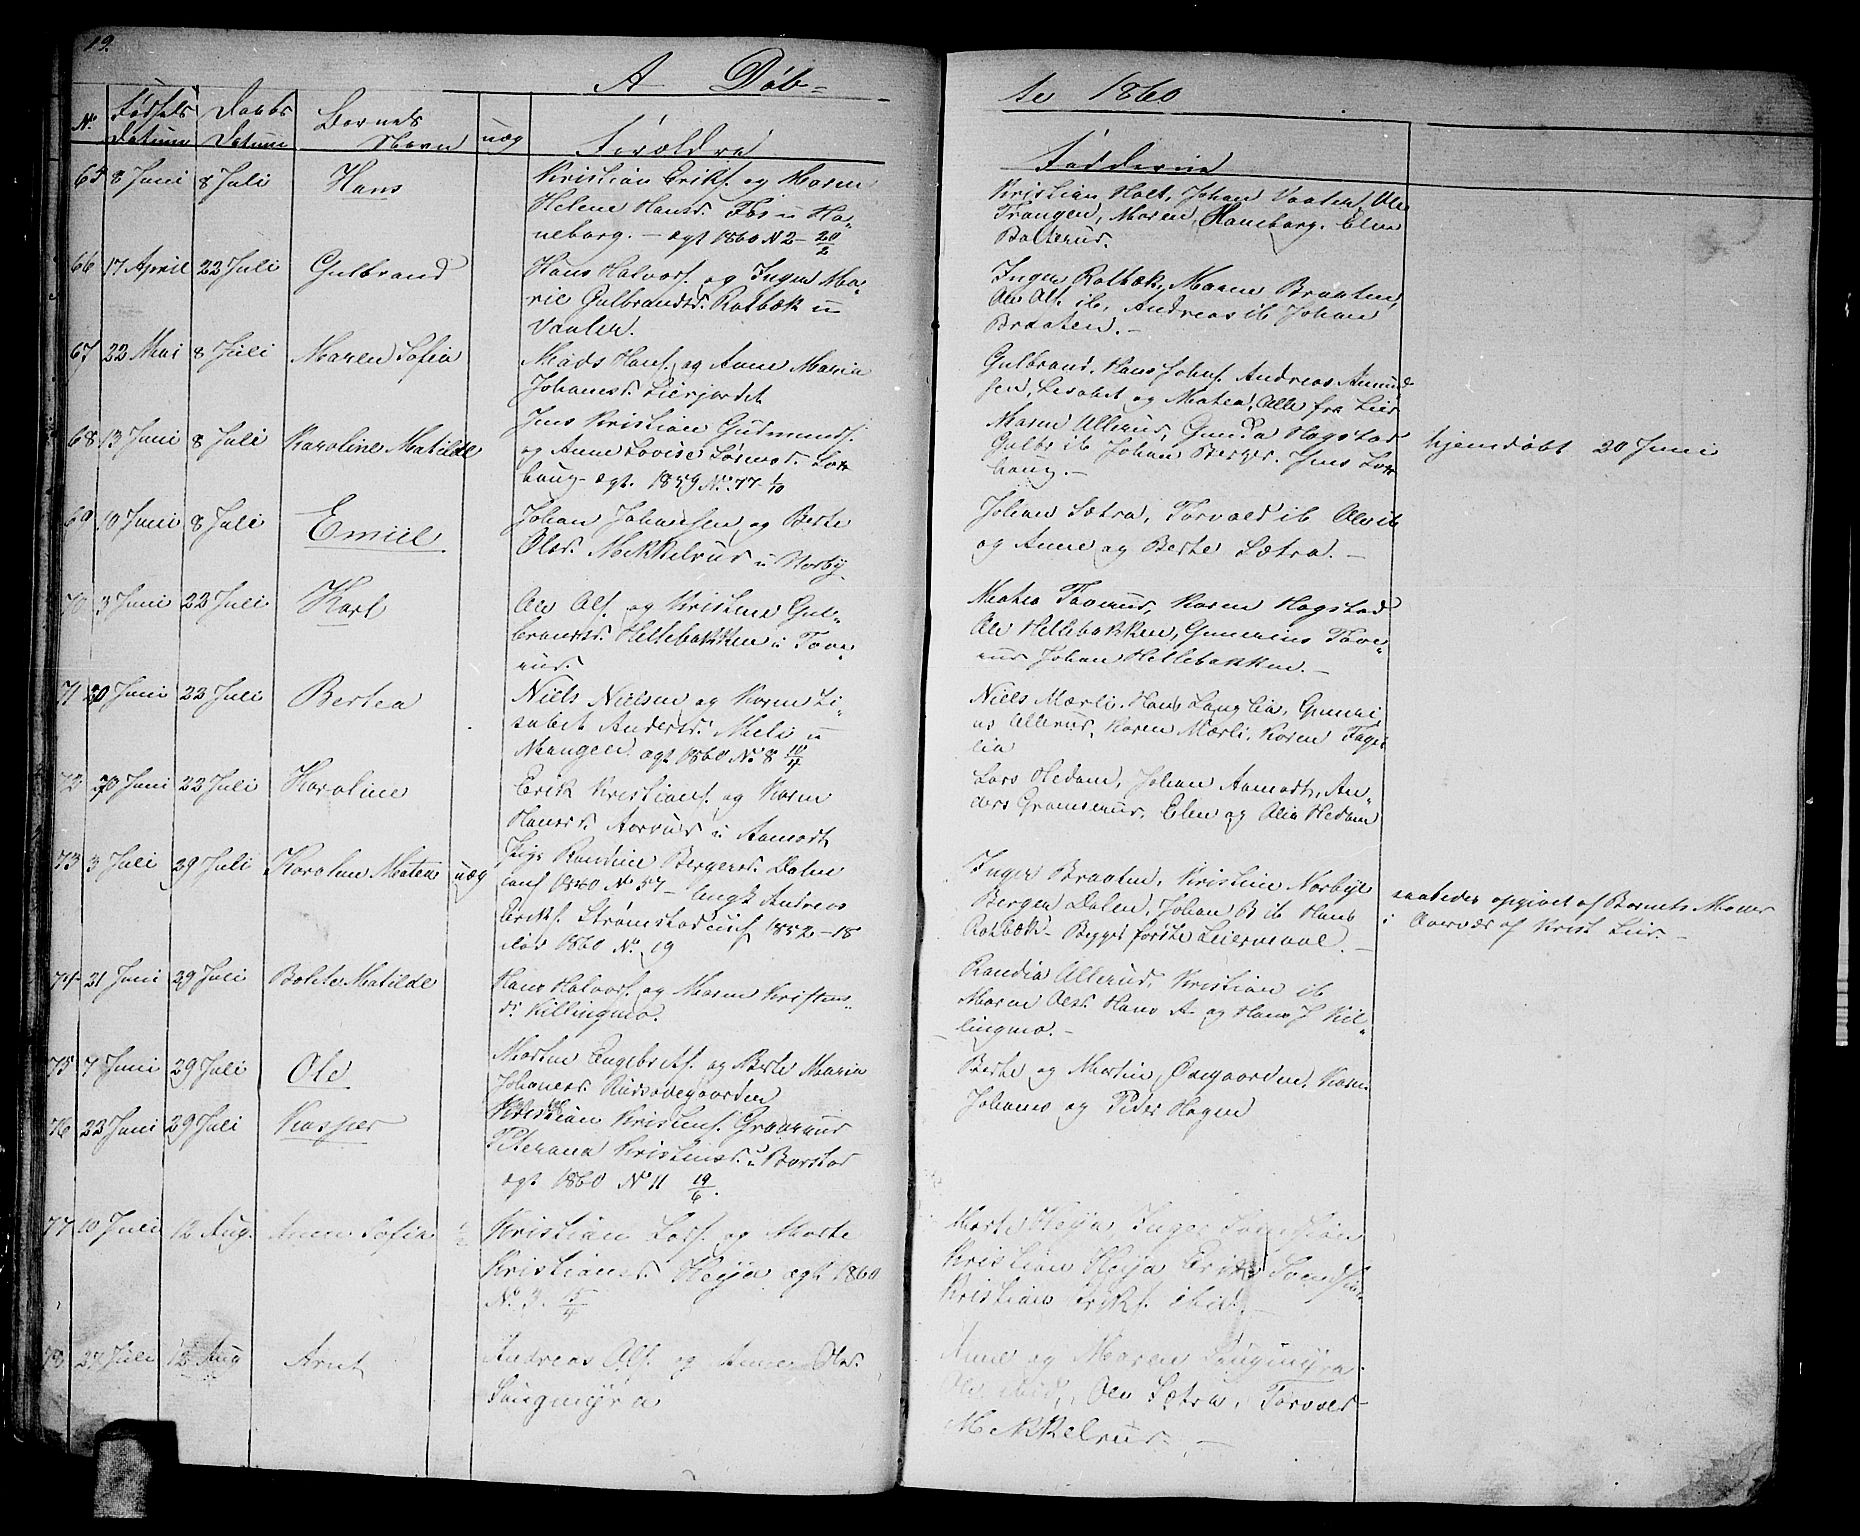 19.
A Döb-
te 1860
No. Fødsels Datum Daabs Datum Barnets Navn uæg Forældre
Fadderne
65 8 Juni 8 Juli Hans Kristian Eriks. og Maren
Helene Hansd. Fos u Ha-
neborg. - ægt 1860 N 2 - 20/2
Kristian Holt, Johan Vaaler, Ole
Trangen, Maren Haneborg. Elen
Bolterud.
66 17 April 22 Juli Gulbrand Hans Halvors. og Inger Ma-
rie Gulbrandsd. Rotbæk u
Vaaler.
Inger Rotbæk, Maren Braaten,
Ole Ols. ib, Andreas ib Johan
Braaten. -
67 22 Mai 8 Juli Maren Sofia Mads Hans. og Anne Maria
Johannesd. Lierjordet
Gulbrand, Hans Johs. Andreas Amund-
sen, Lisabet og Matea, Alle fra Lier
68 13 Juni 8 Juli Karoline Matilde Jens Kristian Gudmunds.
og Anne Lovise Larsd.
haug - ægt. 1859 No. 77 - 1/10
Maren Ullerud, Gunda Hogstad
Gulbr ib Johan Berger. Jens
haug. -
hjemdøbt 20 Juni
69 10 Juni 8 Juli Emiel Johan Johansen og Berte
Olsd. Mekkelrud u Norby
Johan Sætra, Torvald ib Ole ib
og Anne og Berte Sætra. -
70 3 Juni 22 Juli Karl Ole Ols. og Kristine Gul-
bransd. Hellebakken u Tove-
rud.
Matea Toverud, Karen Hogstad
Ole Hellebakken, Gunerius Tove-
rud Johan Hellebakken. -
71 20 Juni 22 Juli Bertea Niels Nielsen og Karen Li-
sabet Andersd. Meli u
Mangen ægt 1860 No. 8 10/4
Niels Mærli. Hans Langlia, Guneri-
us Ullerud, Karen Mærli. Karen Fager-
lia
72 20 Juni 22 Juli Karoline Erik Kristians. og Karen
Hansd. Aarud u Aamodt
Lars Hedem, Johan Aamodt, An-
ders Gramerud, Elen og Olia Hedem
73 3 Juli 29 Juli Karolin Maten uæg Pige Randine Bergersd. Dalen
conf 1860 No 57 - Ungk Andreas
Eriks. Strømstad conf 1852 - 18
1860 No. 19
Inger Braaten, Kristine Norbye
Berger Dalen, Johan B ib Hans
Rotbæk - Begges første Leiermaal. -
saaledes opgivet af Barnets Moder
i Overvær af Krist Lier. -
74 21 Juni 29 Juli Bolete Matilde Hans Halvors. og Maren Kristens-
d. Killingmo.
Randia Ullerud, Kristian ib
Maren Olsd. Hans A og Hans J Kil-
lingmo. -
75 7 Juni 29 Juli Ole Morten Engebrets. og Berte Maria
Johannesd. Rudsødegaarden
Berte og Martin Ødegaarden, Karen
Johannes og Peder Hagen
76 22 Juni 29 Juli Kasper Kristian Kristens. Gramerud
Peterana Kristensd. u Barstad
ægt 1860 No 11 19/6.
77 10 Juli 12 Aug. Anne Sofia Kristian Lars. og Marte
Kristiansd. Heyja ægt 1860
No. 3. 15/4
Marte Heyja, Inger
Kristian Heyja Erik
Kristian Eriks. ibid. -
78 27 Juli 12 Aug Arnt Andreas Ols. og Anne Olsd.
Langmyra
Anne og Maren Langmyra
Ole ibid., Ole Sætra, Torvald
Mekkelrud. -